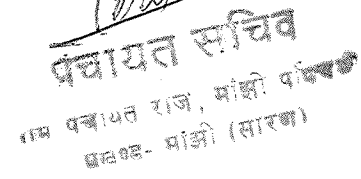 पंचायत सचिव
ग्राम पंचायत राज, मांझी पश्चिमी
प्रखण्ड- मांझी (सारण)